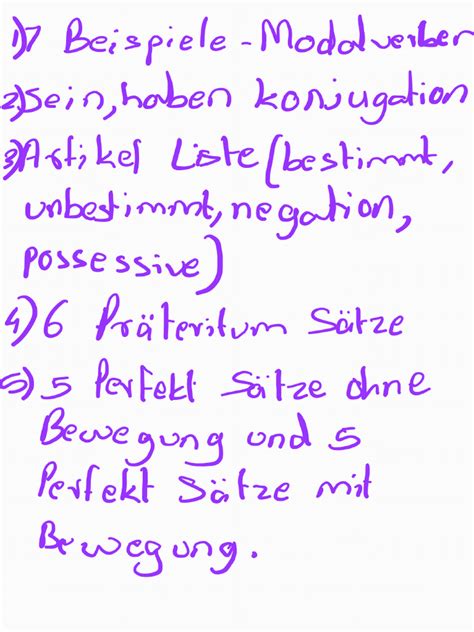 1)7 Beispiele-Modalverben
2)Sein,haben konjugation
3)Artikel Liste(bestimmt,
unbestimmt,negation,
possessive)
4)6 Präteritum Sätze
5)5 Perfekt Sätze ohne
Bewegung und 5
Perfekt Sätze mit
Bewegung.